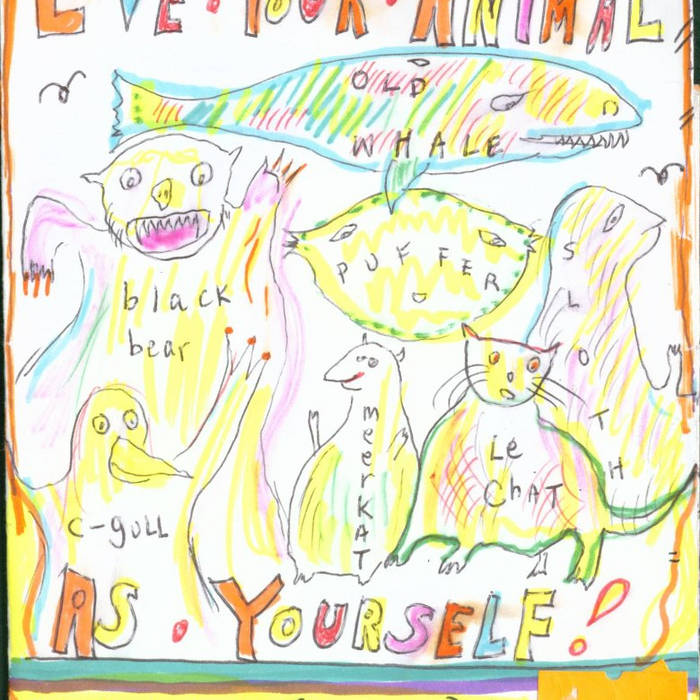 LOVE · YOUR · ANIMAL
OLD
WHALE
PUFFER
black
bear
SLOTH
meerKAT
Le
ChAT
c-gull
AS · YOURSELF!